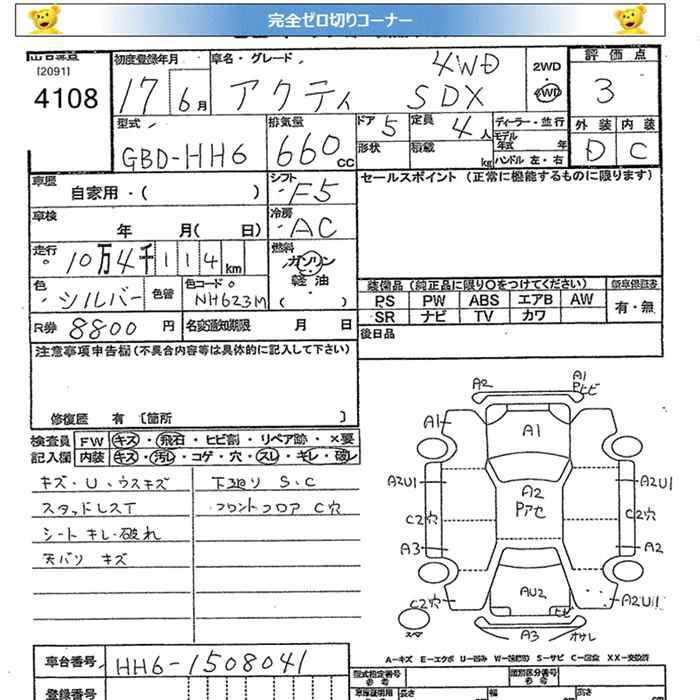 完全ゼロ切りコーナー
[2091]
4108
初度登録年月
17 6月
車名・グレード
アクティ 4WD SDX
2WD
4WD
評価点
3
外装 内装
D C
型式
GBD-HH6
排気量
660cc
ドア 5
定員 4人
形状
積載 kg
ディーラー・並行
モデル年式 年
ハンドル 左・右
車歴
自家用・( )
シフト
F5
セールスポイント (正常に機能するものに限ります)
車検
年 月( 日)
冷房
AC
走行
10万4千114km
燃料
ガソリン
軽油
( )
色
シルバー
色替
色コード
NH623M
装備品 (純正品に限り○をつけてください)
PS PW ABS エアB AW
SR ナビ TV カワ
有・無
R券 8800円
名変通知期限 月 日
後日品
注意事項申告欄(不具合内容等は具体的に記入して下さい)
修復歴 有 〔箇所 〕
検査員記入欄
FW キズ・飛石・ヒビ割・リペア跡・×要
内装 キズ・汚レ・コゲ・穴・スレ・キレ・破レ
キズ・U・ウスキズ
スタッドレスT
シートキレ・破れ
天バリ キズ
下廻り S・C
フロントフロア C穴
A2
A1
Pヒビ
A1
A1
A1
A2U1
A2
Pアセ
A2U1
C2穴
C2穴
A3
A2
AU2
C2穴
ヒビ
A2U1
スペ
A3
オサレ
A-キズ E-エクボ U-凹み W-補修跡 S-サビ C-腐食 XX-交換済
車台番号
HH6-1508041
登録番号
型式指定番号
類別区分番号
参考
長さ
幅
高さ